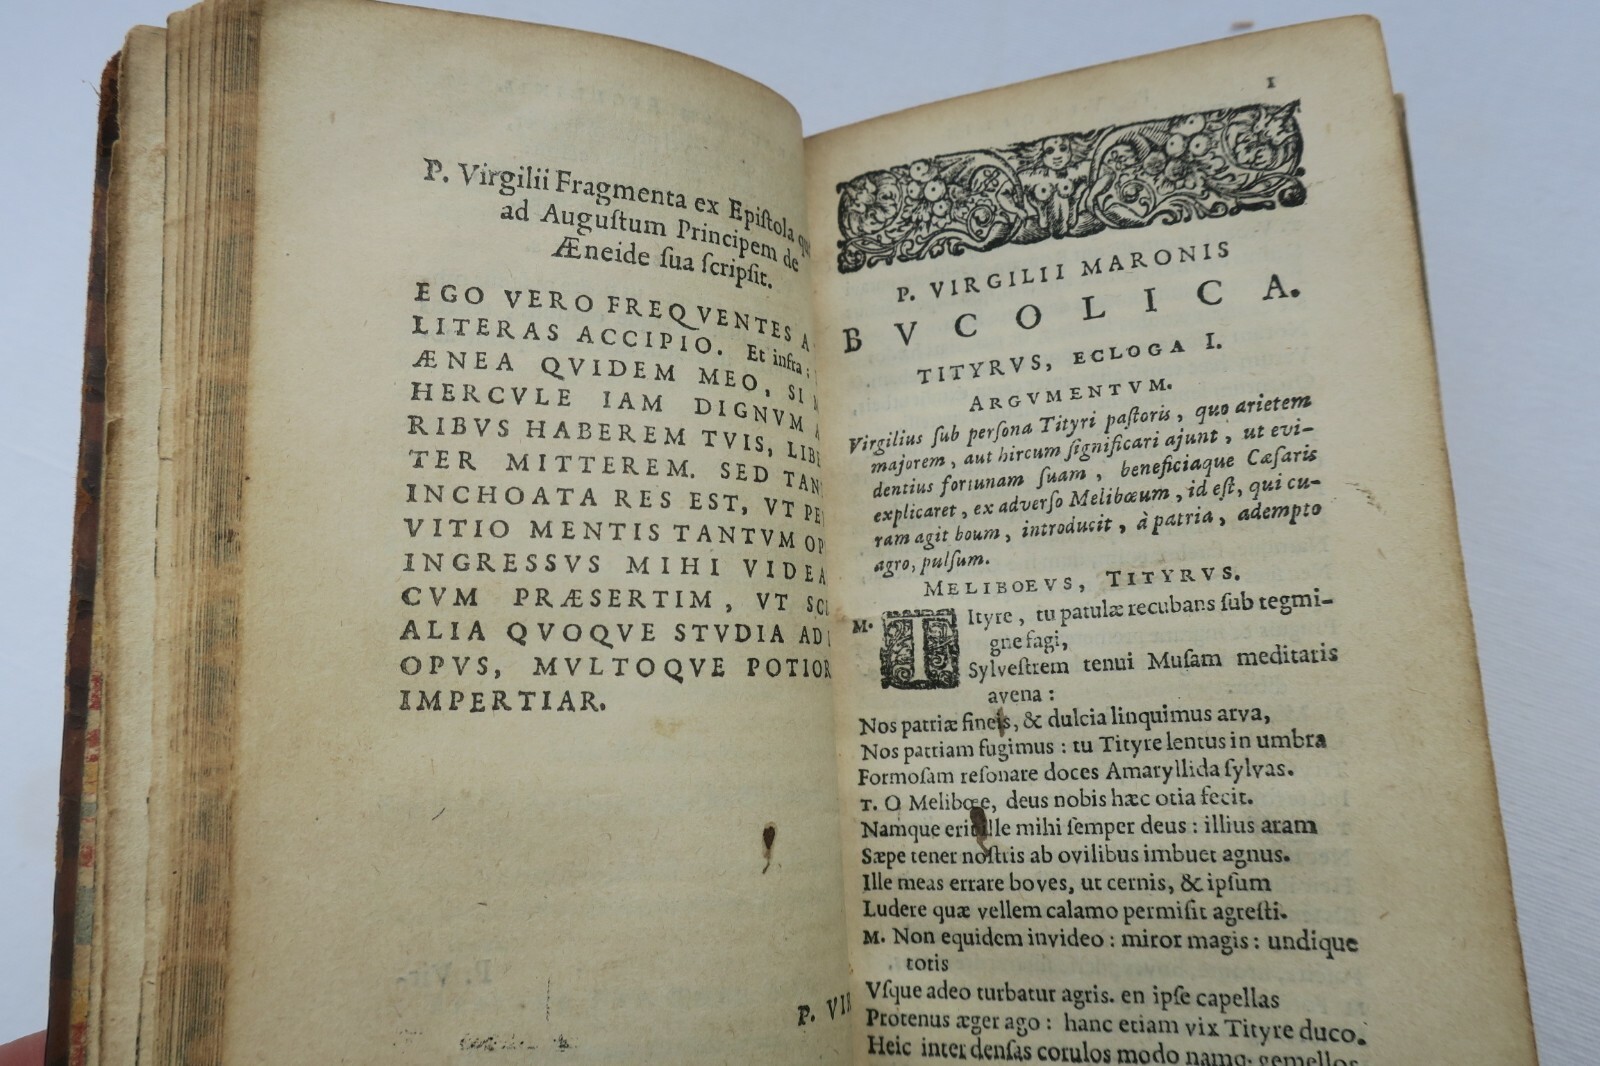 P. Virgilii Fragmenta ex Epiſtola
ad Auguſtum Principem de
Æneide ſua ſcripſit.
EGO VERO FREQVENTES A
LITERAS ACCIPIO. Et infra;
ÆNEA QVIDEM MEO, SI
HERCVLE IAM DIGNVM
RIBVS HABEREM TVIS, LIBE
TER MITTEREM. SED TAN
INCHOATA RES EST, VT PE
VITIO MENTIS TANTVM OP
INGRESSVS MIHI VIDEA
CVM PRÆSERTIM, VT SCI
ALIA QVOQVE STVDIA AD
OPVS, MVLTOQVE POTIOR
IMPERTIAR.
P. VIR
1
P. VIRGILII MARONIS
BVCOLICA.
TITYRVS, ECLOGA I.
ARGVMENTVM.
Virgilius ſub perſona Tityri paſtoris, quo arietem
majorem, aut hircum ſignificari ajunt, ut evi-
dentius fortunam ſuam, beneficiaque Cæſaris
explicaret, ex adverſo Melibœum, id eſt, qui cu-
ram agit boum, introducit, à patria, adempto
agro, pulſum.
MELIBOEVS, TITYRVS.
M. TItyre, tu patulæ recubans ſub tegmi-
gne fagi,
Sylveſtrem tenui Muſam meditaris
avena:
Nos patriæ fineis, & dulcia linquimus arva,
Nos patriam fugimus: tu Tityre lentus in umbra
Formoſam reſonare doces Amaryllida ſylvas.
T. O Melibœe, deus nobis hæc otia fecit.
Namque erit ille mihi ſemper deus: illius aram
Sæpe tener noſtris ab ovilibus imbuet agnus.
Ille meas errare boves, ut cernis, & ipſum
Ludere quæ vellem calamo permiſit agreſti.
M. Non equidem invideo: miror magis: undique
totis
Vſque adeo turbatur agris. en ipſe capellas
Protenus æger ago: hanc etiam vix Tityre duco.
Heic inter denſas corulos modo namq. gemellos